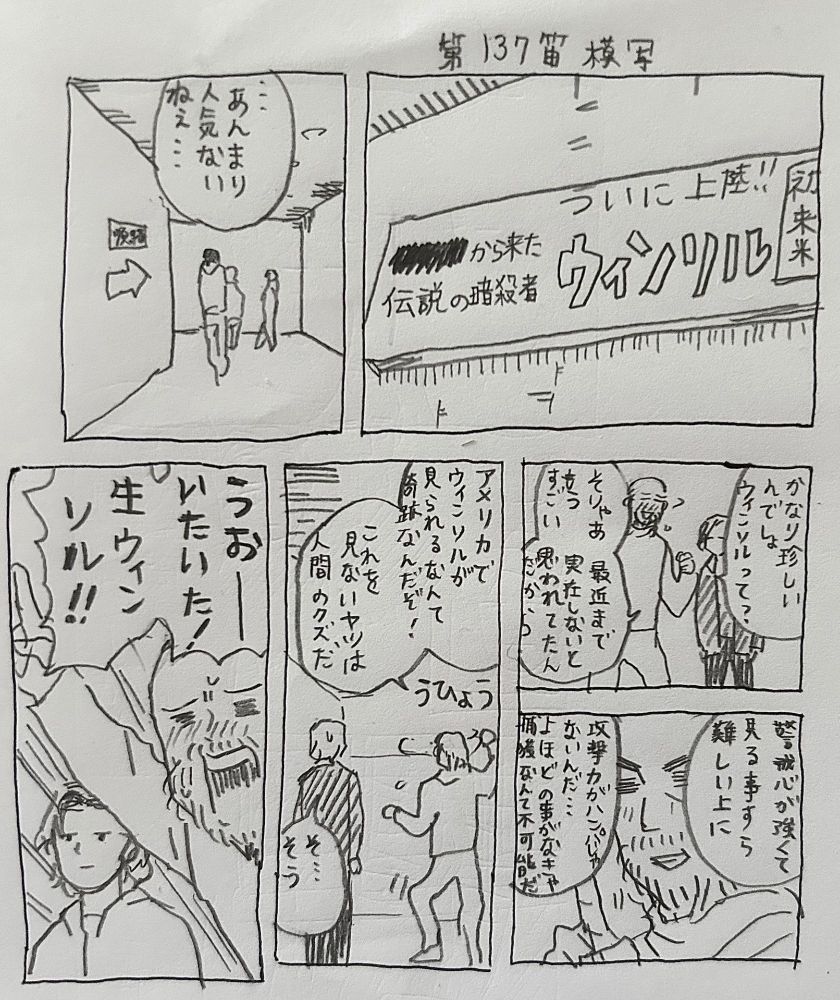 第137笛 模写
初来米
ついに上陸!!
ウィンソル
から来た
伝説の暗殺者
…
あんまり
人気ない
ねぇ…
かなり珍しい
んでしょ
ウィンソルって?
そりゃあ
もう
すごい
最近まで
実在しないと
思われてたん
だから
警戒心が強くて
見る事すら
難しい上に
攻撃力がハンパじゃ
ないんだ…
よほどの事がなきゃ
捕獲なんて不可能だ
アメリカで
ウィンソルが
見られるなんて
奇跡なんだぞ!
これを
見ないヤツは
人間のクズだ
うひょう
そ…
そう
うおー
いたいた!
生ウィン
ソル!!